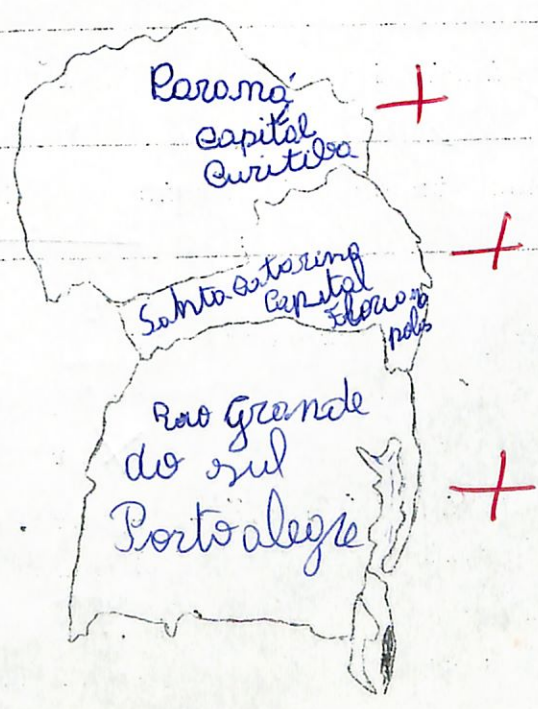 Paraná
capital
Curitiba
Santa Catarina
Capital
Floriana
polis
Rio Grande
do sul
Porto alegre